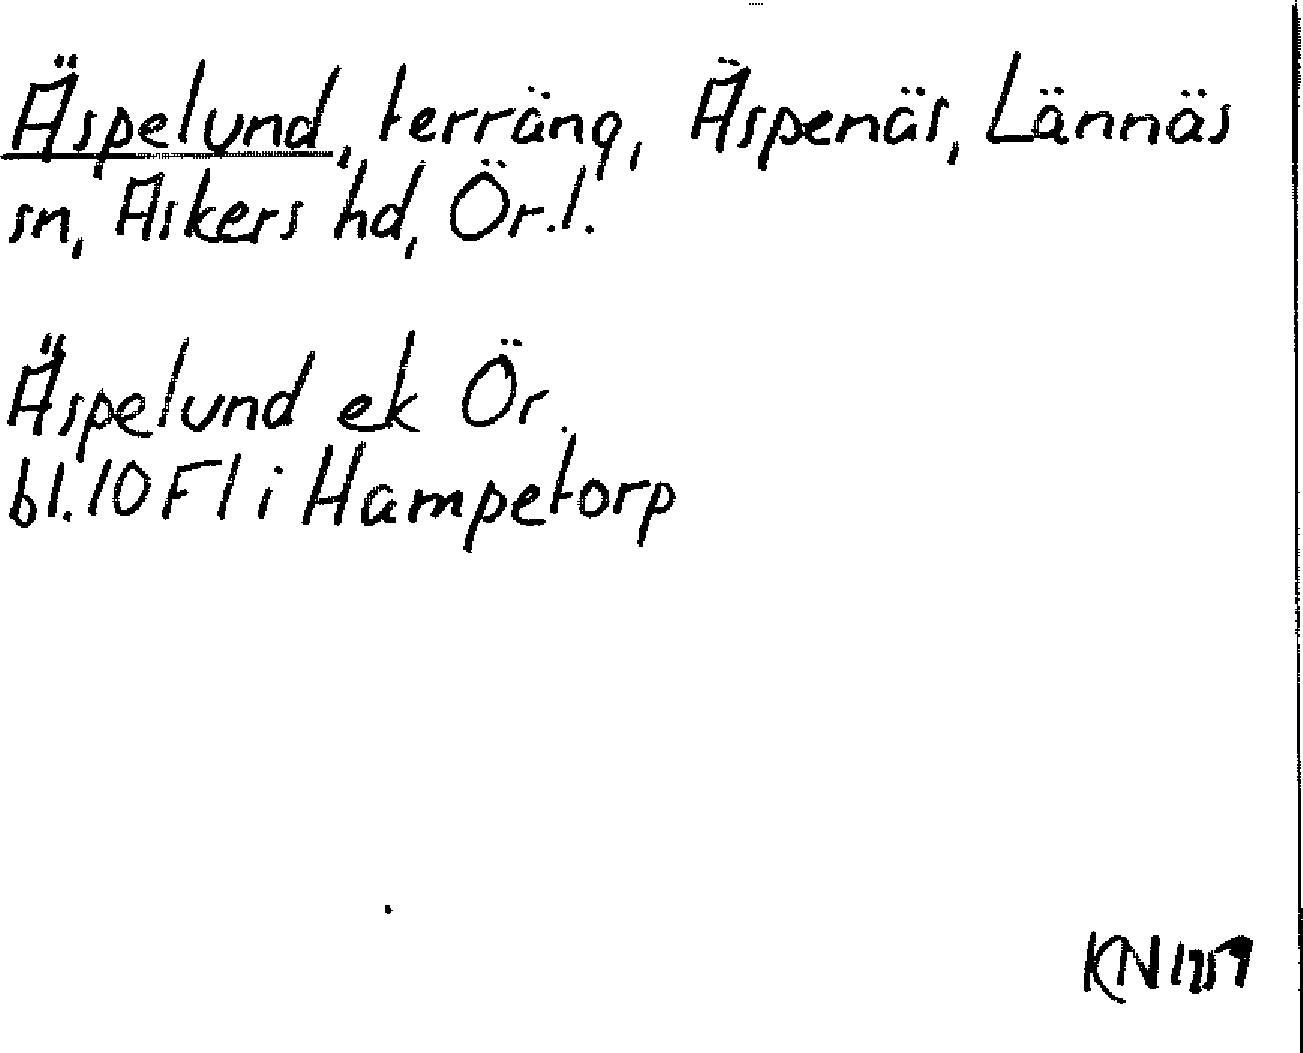 Äspelund, terräng, Äspenäs, Lännäs
sn, Askers hd, Ör.l.
Äspelund ek Ör.
bl. 10 F1 i Hampetorp
KN